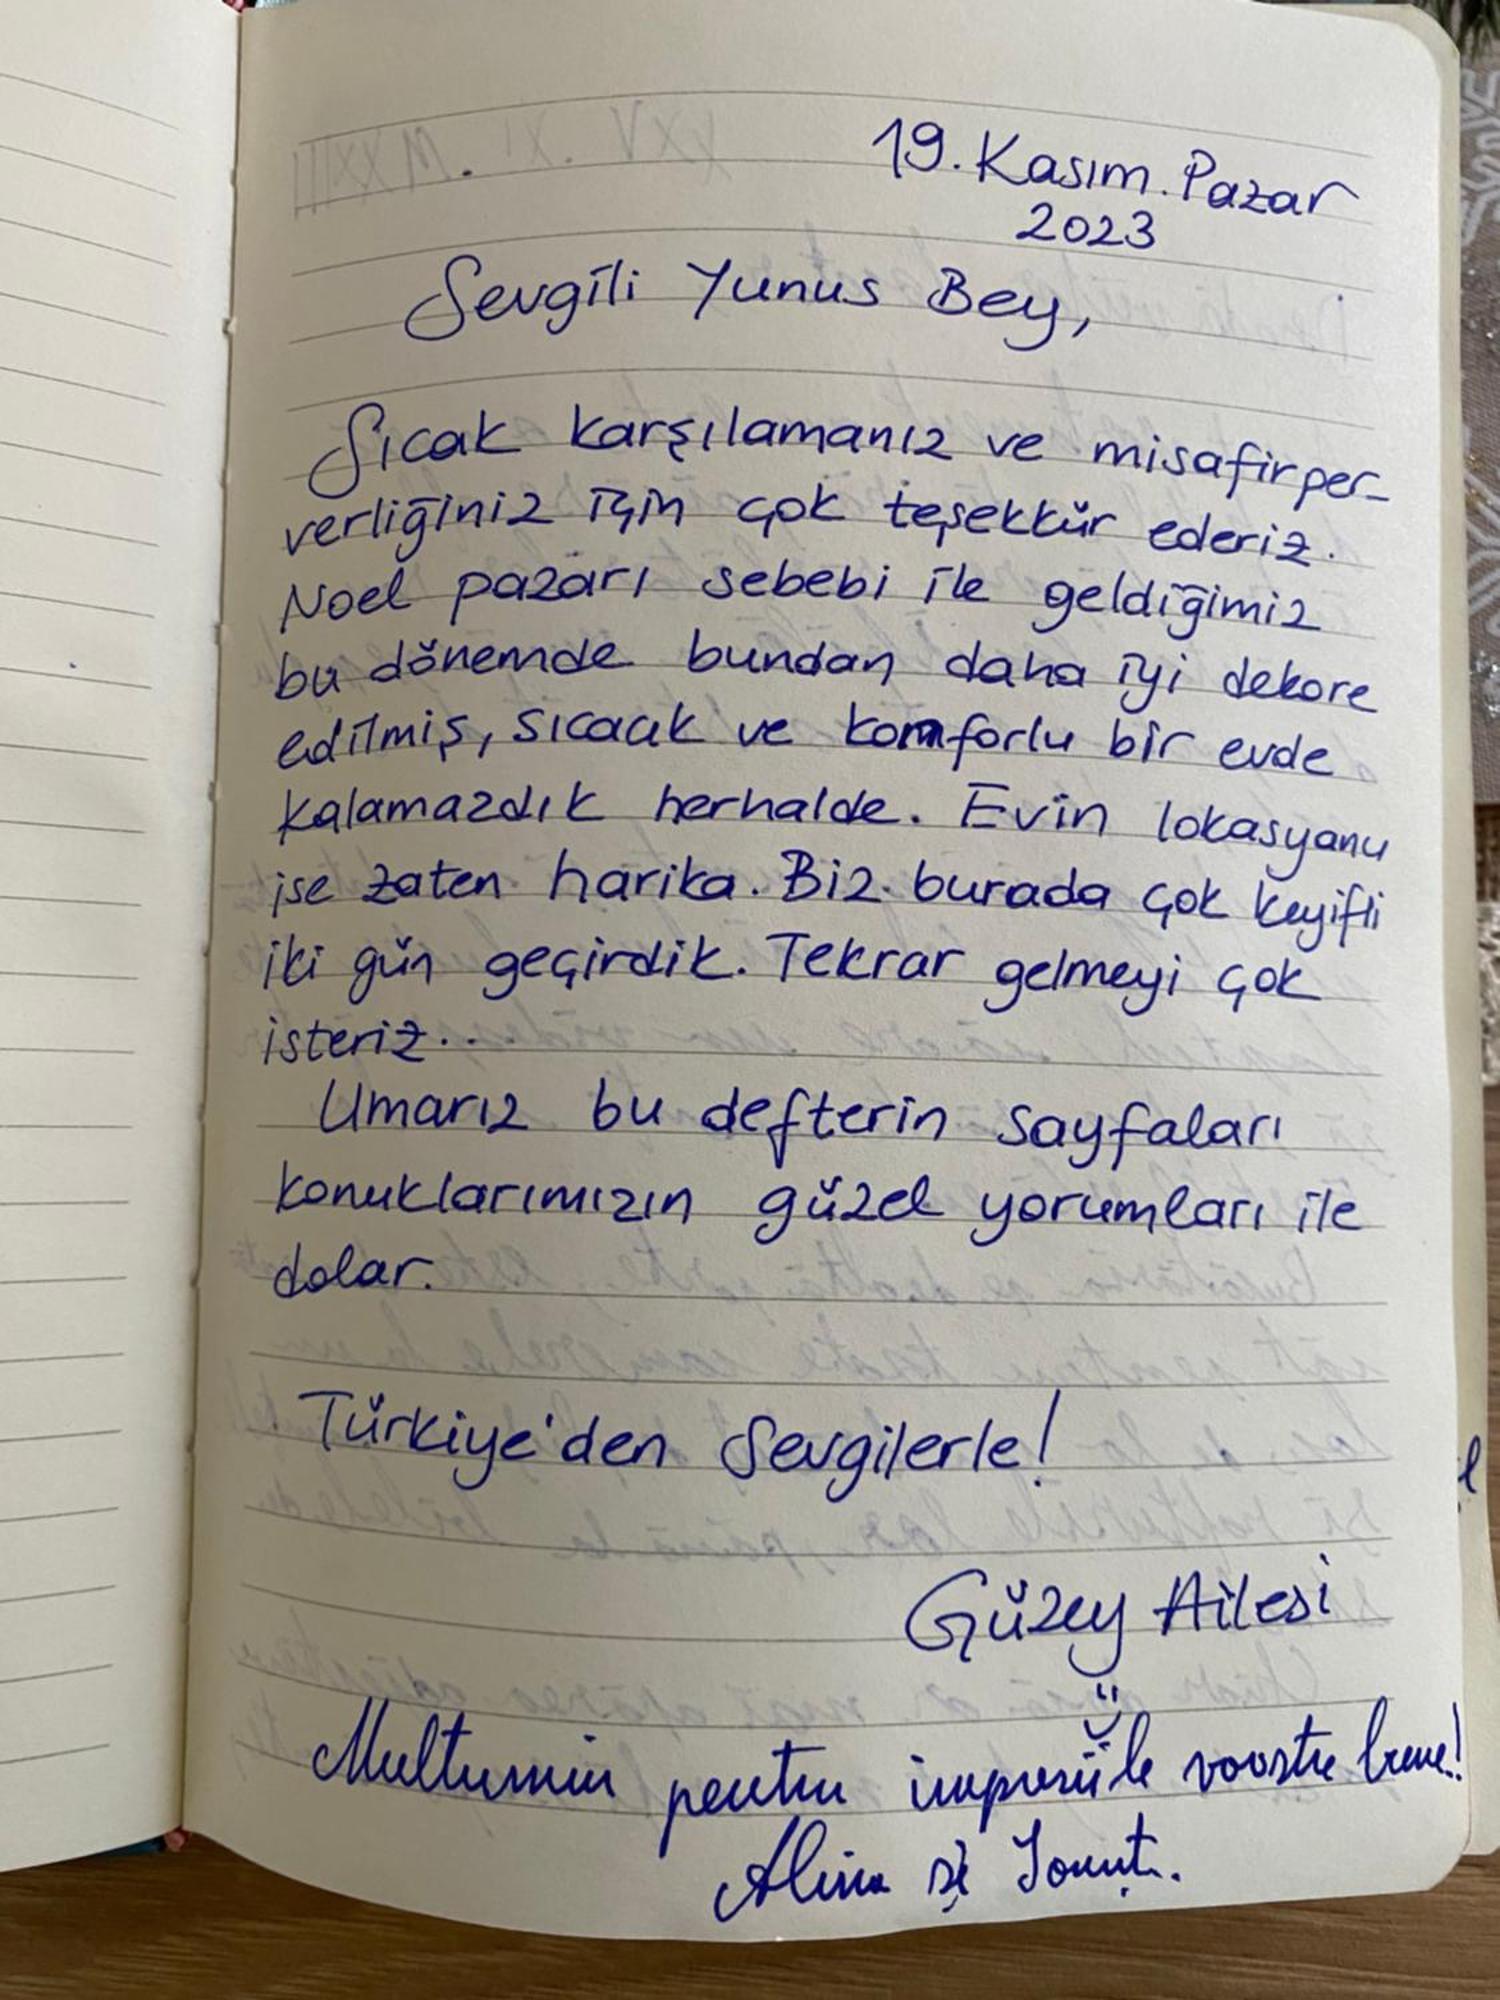 19. Kasım. Pazar
2023
Sevgili Yunus Bey,
Sıcak karşılamanız ve misafirper-
verliğiniz için çok teşekkür ederiz.
Noel pazarı sebebi ile geldiğimiz
bu dönemde bundan daha iyi dekore
edilmiş, sıcacık ve komforlu bir evde
kalamazdık herhalde. Evin lokasyonu
ise zaten harika. Biz burada çok keyifli
iki gün geçirdik. Tekrar gelmeyi çok
isteriz..
Umarız bu defterin sayfaları
konuklarımızın güzel yorumları ile
dolar.
Türkiye'den Sevgilerle!
Güzey Ailesi
Multumim pentru impresiile voastre bune!
Alina și Ionuț.